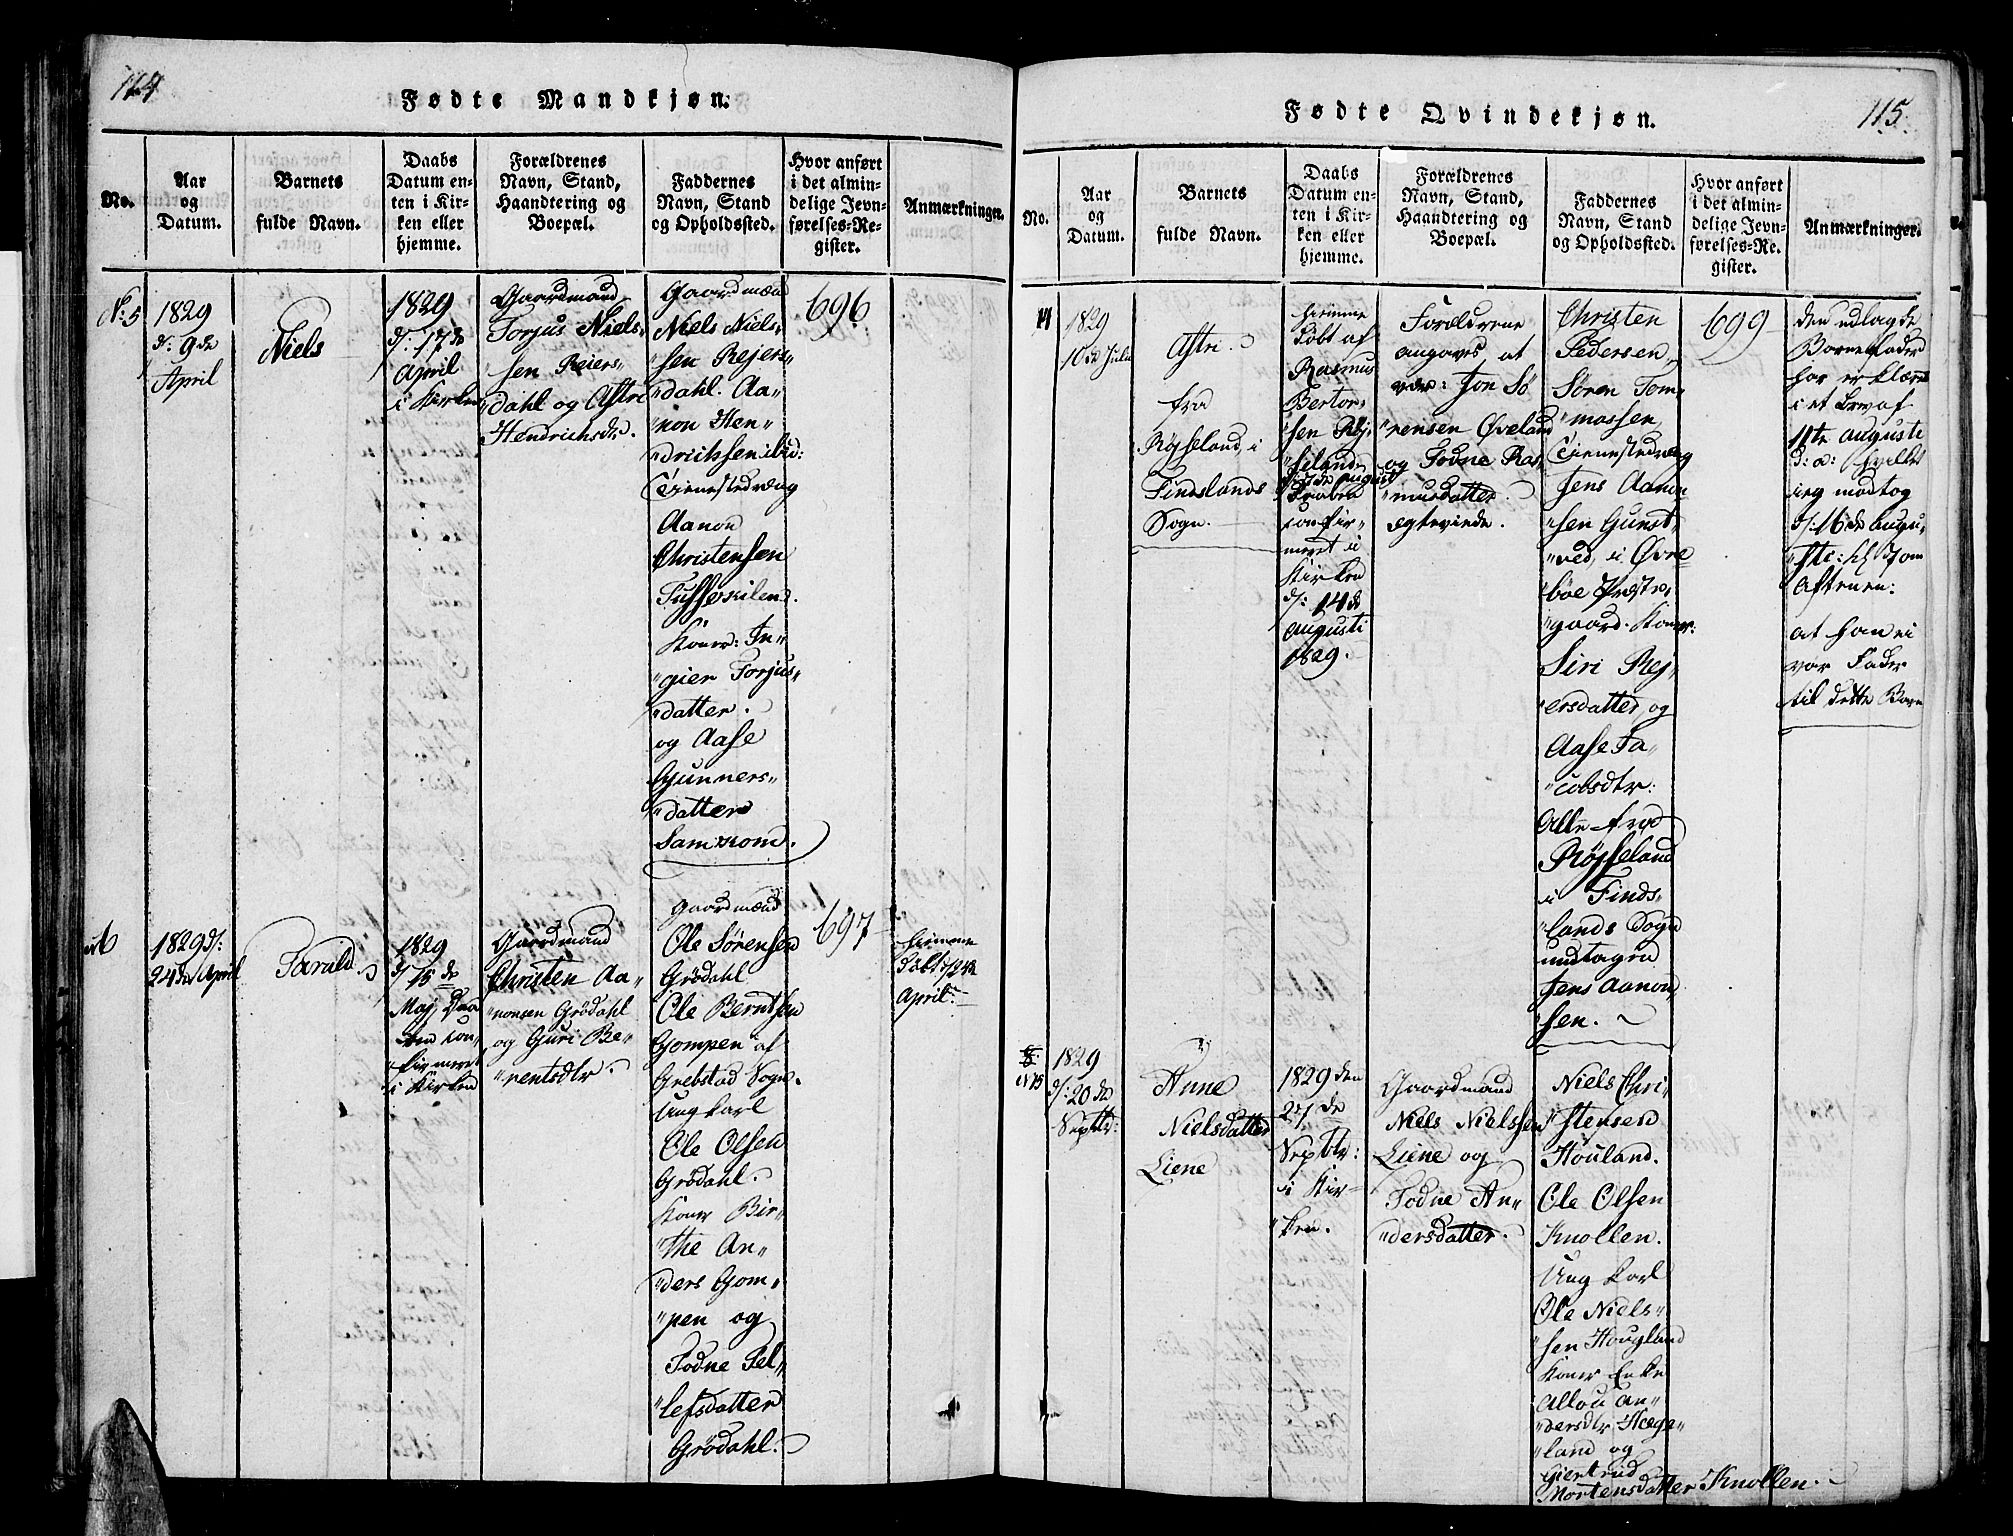 114
Fødte Mandkjøn.
No.
Aar
og
Datum.
Barnets
fulde Navn.
Daabs
Datum en-
ten i Kir-
ken eller
hjemme.
Forældrenes
Navn, Stand,
Haandtering og
Boepæl.
Faddernes
Navn, Stand
og Opholdssted.
Hvor anført
i det almin-
delige Jevn-
førelses-Re-
gister.
Anmærkninger.
No: 5
1829
d: 9de
April
Niels
1829
d: 17de
April
i Kirken
Gaardmand
Torjus Niels-
"sen Reiers-
"dahl og Astri
Hendrichsdr.
Gaardmænd
Niels Niels-
"sen Rejers-
"dahl. Aa-
"non Hen-
"drichsen ibid:
Tienestedræng
Aanon
Christensen
Koner: In-
"gier Torjus-
"datter.
og Aase
Gunners-
"datter
696
6
1829 d:
24de April
Tarald
1829
d: 15de
Maj, Daa-
ben con-
"firmeret
i Kirken
Gaardmand
Christen Aa-
"nonsen Grödahl
og Guri Be-
"rentsdtr.
Gaardmænd
Ole Sörensen
Grödahl
Ole Berntsen
Gompen af
Grebstad Sogn.
Ung karl
Ole Olsen
Grödahl.
Koner Bir-
"the An-
"ders Gom-
"pen og
Todne Tel-
"lefsdatter
Grödahl.
697
hjemme
døbt d: 24de
April
115.
Fødte Qvindekjøn.
No.
Aar
og
Datum.
Barnets
fulde Navn.
Daabs
Datum en-
ten i Kir-
ken eller
hjemme.
Forældrenes
Navn, Stand,
Haandtering og
Boepæl.
Faddernes
Navn, Stand
og Opholdssted.
Hvor anført
i det almin-
delige Jevn-
førelses-Re-
gister.
Anmærkninger.
14
1829
10de Julii
Astri.
fra
Røyseland, i
Findslands
Sogn.
hjemme
døbt af
Rasmus
Bertor-
"sen Røj-
"seland
d: 7de August
Daaben
confir-
meret i
Kirken
d: 14de
Augusti
1829.
Forældrene
angaves, at
være: Jon Sö-
"rensen Øveland
og Todne Ras-
"musdatter.
ægteviede.
Christen
Pedersen,
Sören Tom-
"massen,
Tienestedræng
Jens Aanon
"sen Gunst-
"ved, i Øvre
böe Præste-
"gaard. Koner:
Siri Rej-
"ersdatter, og
Aase Ja-
"cobsdtr:
Alle fra
Røysseland
i Finds-
"lands Sogn
undtagen
Jens Aanon-
"sen.
699
Den udlagde
Barnefader
har erklæret
i et Brev af
11te Augusti
d: a: hvilket
jeg modtog
d: 16de Augu-
"sti: Kl 7 om
Aftenen:
at han ei
var Fader
til dette Barn
15
1829
d: 20de
Septbr:
Anne
Nielsdatter
Liene
1829 den
27de
Septbr:
i Kir-
"ken.
Gaardmand
Niels Nielssen
Liene og
Todne An-
"dersdatter.
Niels Chri-
"stensen
Höuland.
Ole Olsen
Knollen.
Ung karl
Ole Niels-
"sen Hougland
Koner Enke
Allou An-
"dersdtr Hæge-
"land og
Giertrud
Mortensdatter Knollen.